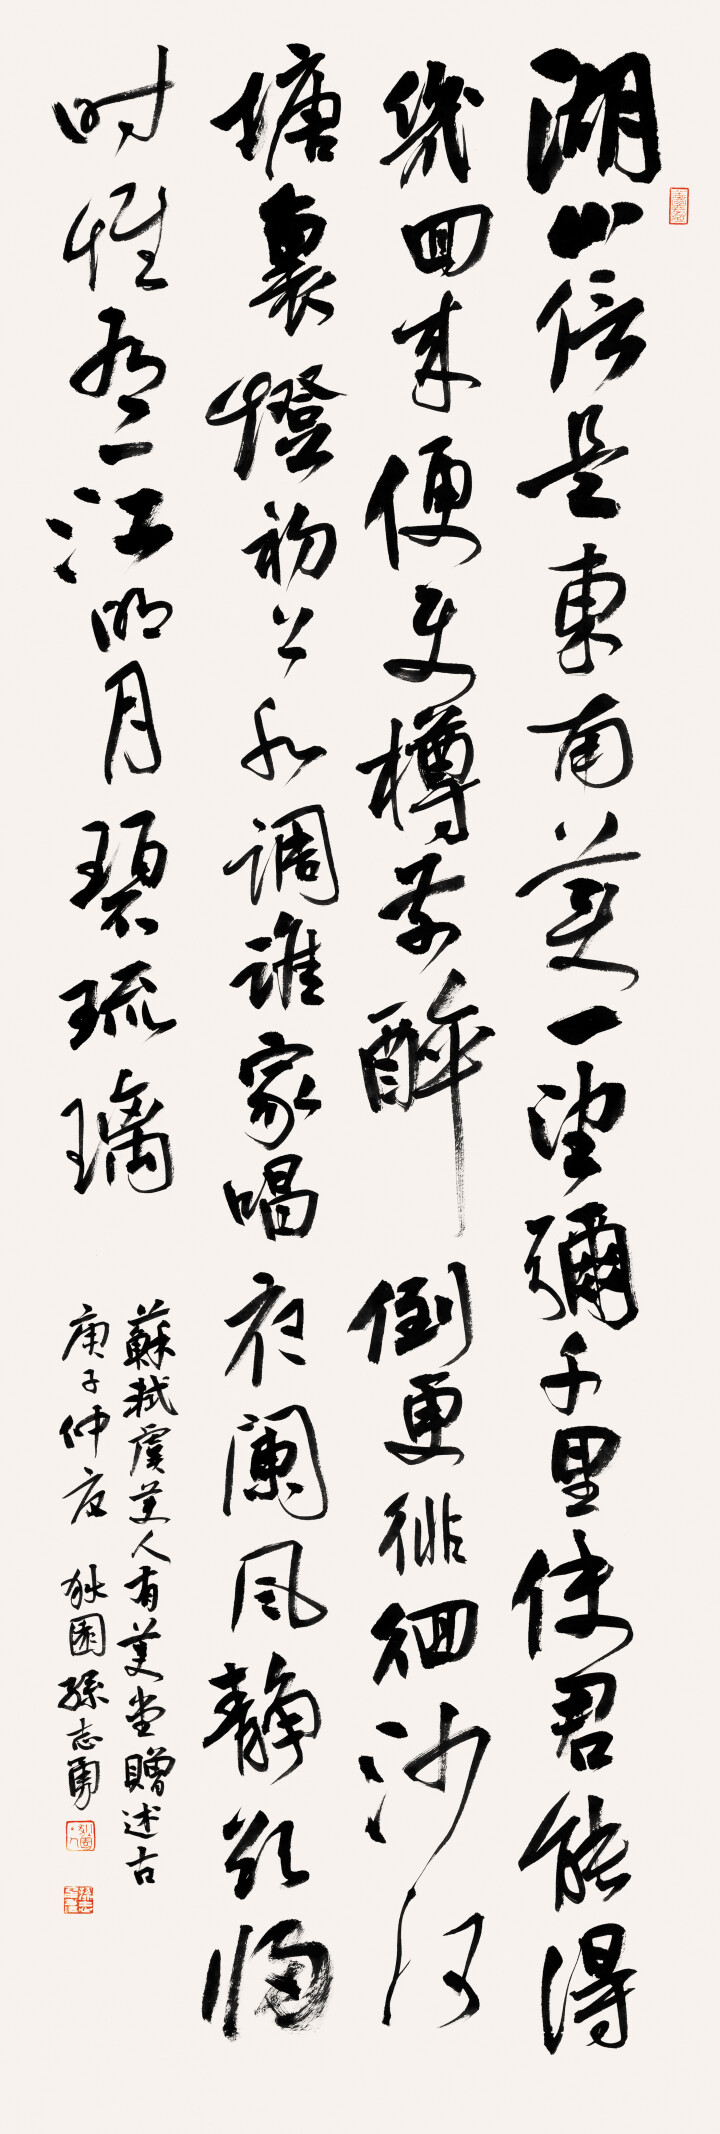 湖山信是東南美一望彌千里使君能得
幾回来便使樽前醉倒更徘徊沙河
塘裏燈初上水調誰家唱夜闌風靜欲歸
时惟有一江明月碧琉璃
蘇軾虞美人有美堂贈述古
庚子仲夏 園孫志勇